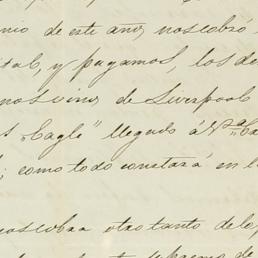 nio de este año, nos cobró
tal, y pagamos, los de
nos vinos de Liverpool
"Eagle" llegado á
; como todo constará en l
nos cobra otro tanto de lo